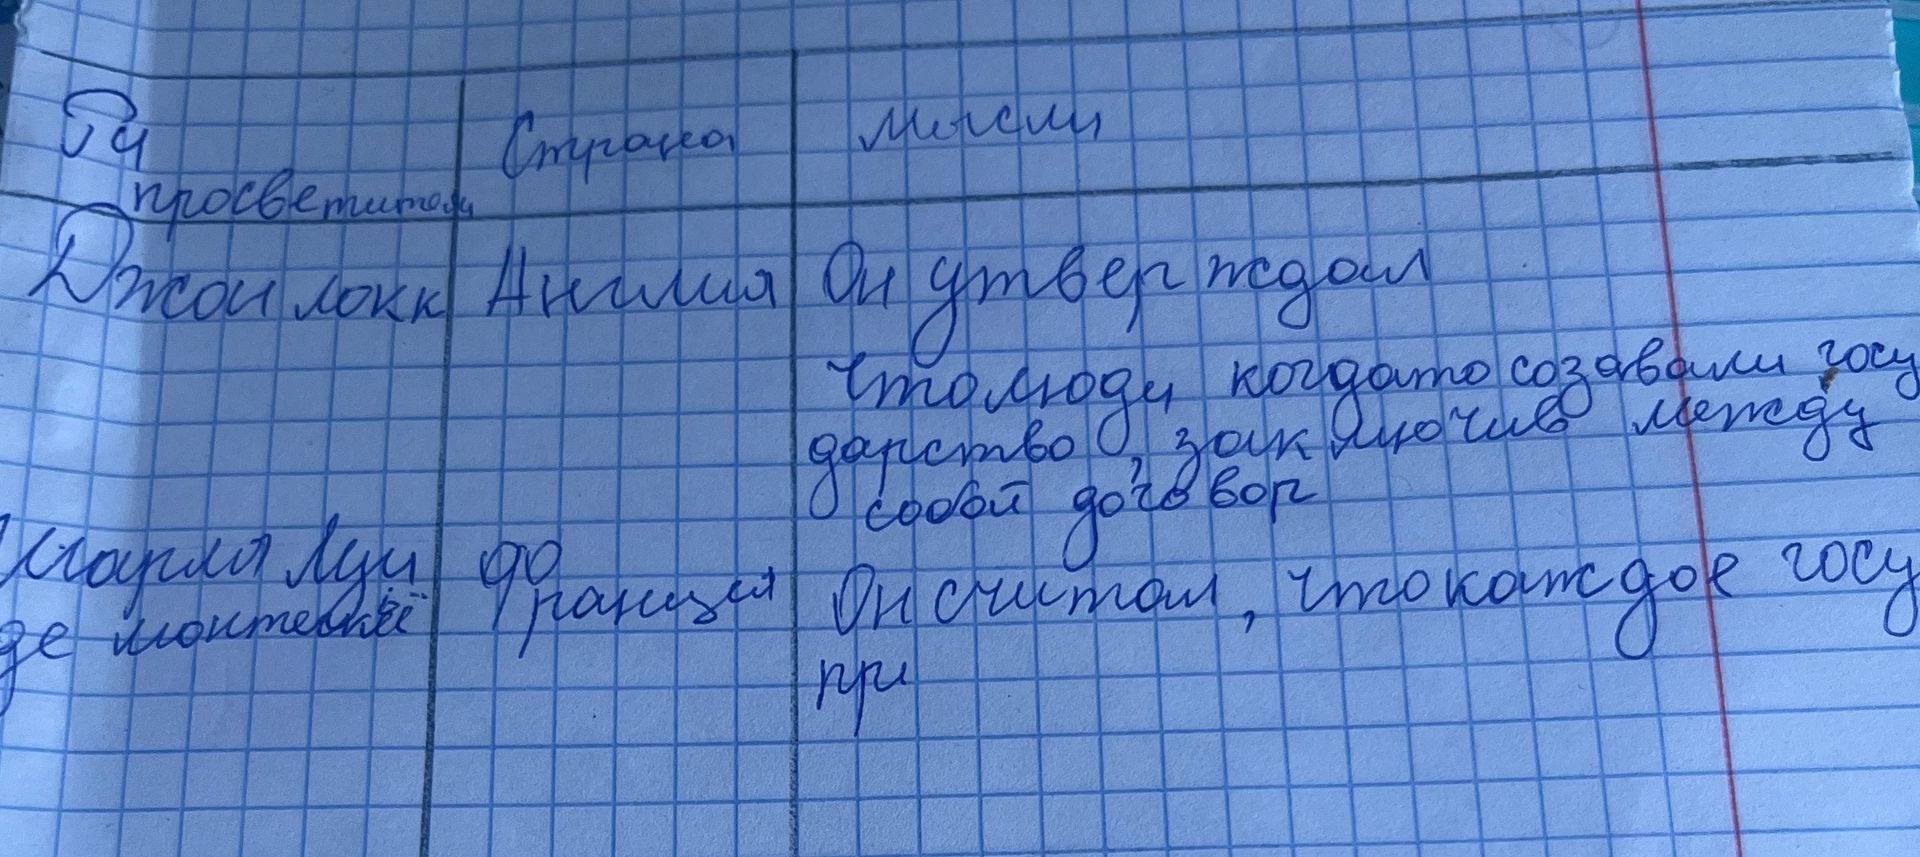 просветители
Страна
мысли
Джон локк
Англия
Он утверждал
что люди когдато создвали госу
дарство, заключив между
собой договор
Шарля Луи
де монтескьё
франция
Он считал, что каждое госу
при